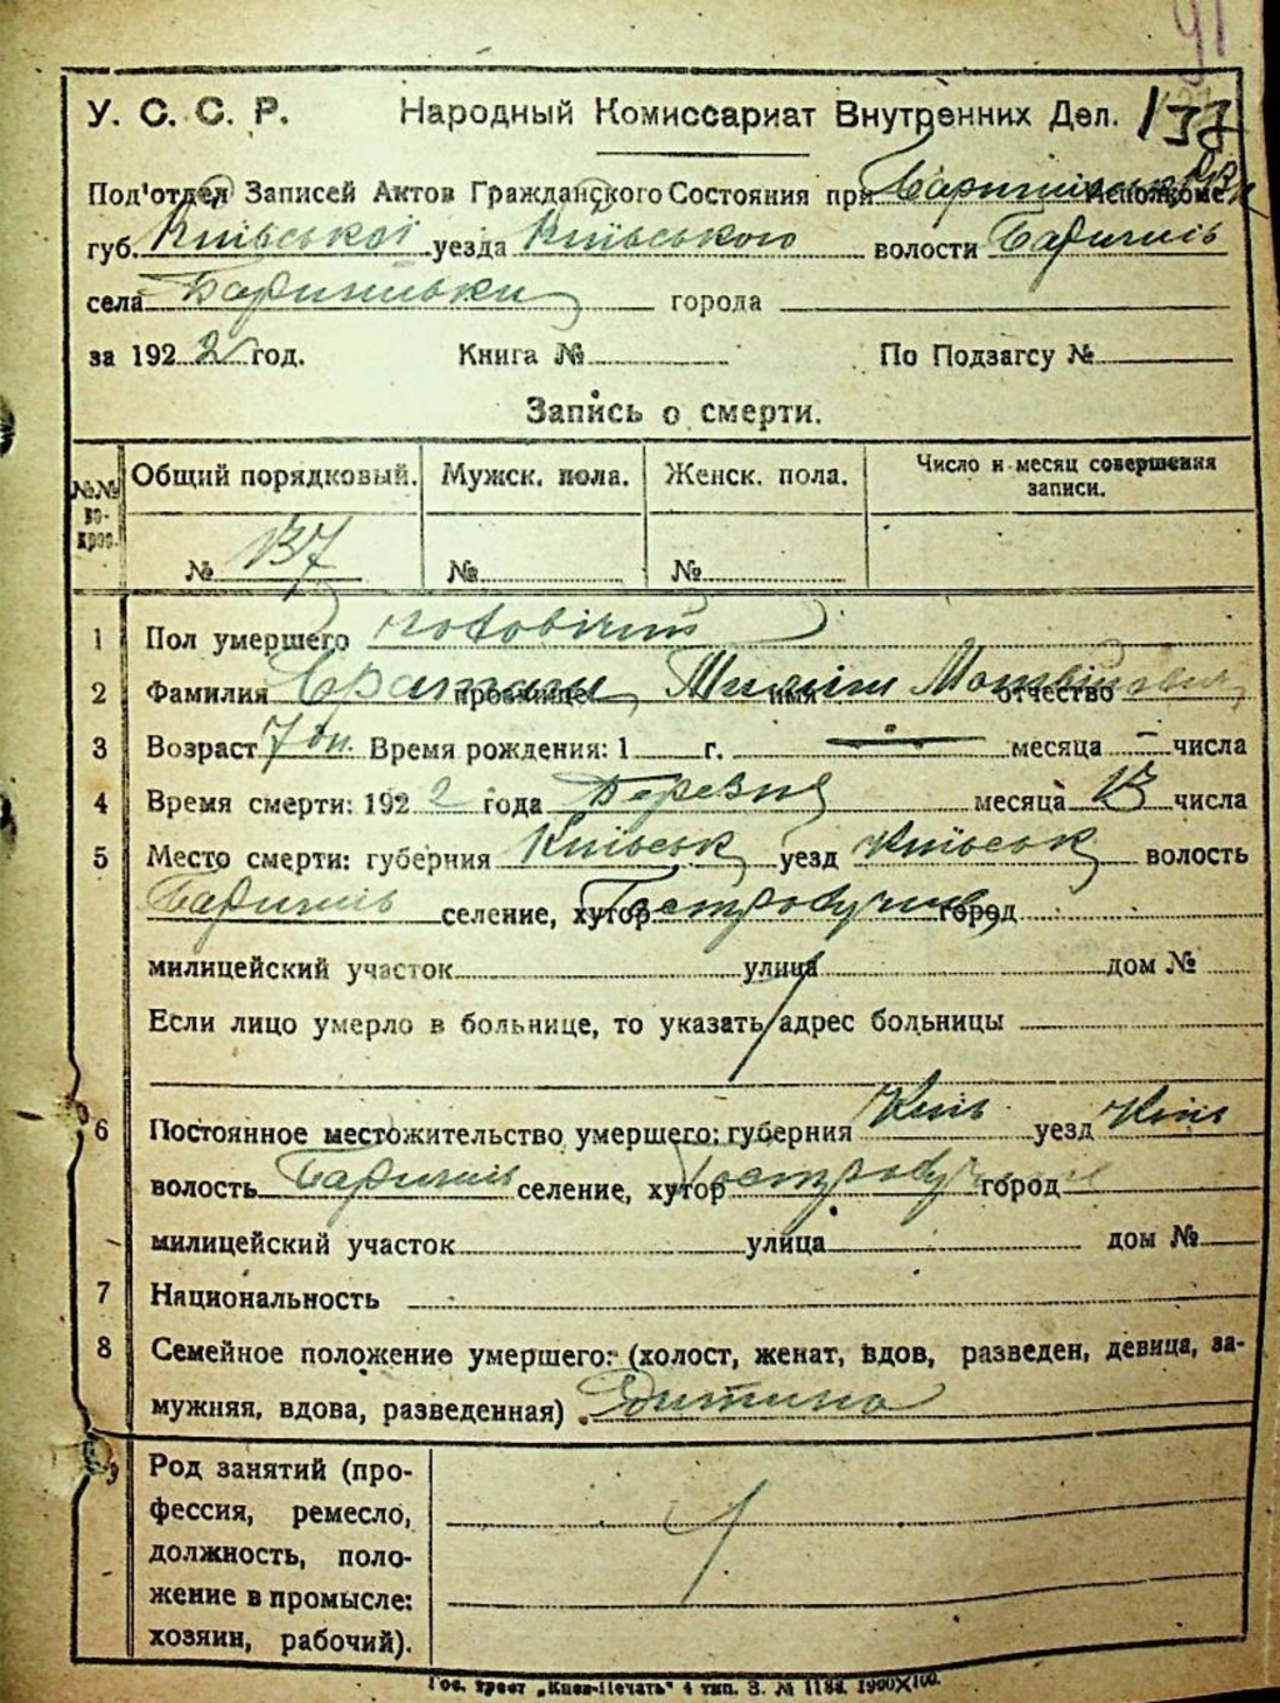 91
У. С. С. Р. Народный Комиссариат Внутренних Дел. 137
Под'отдел Записей Актов Гражданского Состояния при Исполкоме
губ. Київської уезда Київського волости Баришпіль
села за города
за 1922 год. Книга № По Подзагсу №
Запись о смерти.
№№ вопрос. Общий порядковый. Мужск. пола. Женск. пола. Число и месяц совершения записи.
№ 137 № №
1 Пол умершего чоловічий
2 Фамилия прозвище имя отчество
3 Возраст 7 дн. Время рождения: 1 г. — месяца — числа
4 Время смерти: 1922 года Березня месяца 13 числа
5 Место смерти: губерния Київськ уезд Київськ волость
Баришпіль селение, хутор город
милицейский участок улица дом №
Если лицо умерло в больнице, то указать адрес больницы
6 Постоянное местожительство умершего: губерния Київ уезд Київ
волость Баришпіль селение, хутор город
милицейский участок улица дом №
7 Национальность
8 Семейное положение умершего: (холост, женат, вдов, разведен, девица, за-
мужняя, вдова, разведенная) Дитина
9 Род занятий (про-
фессия, ремесло,
должность, поло-
жение в промысле:
хозяин, рабочий).
Гос. трест „Киев-Печать“ 4 тип. З. № 1188. 1900×100.